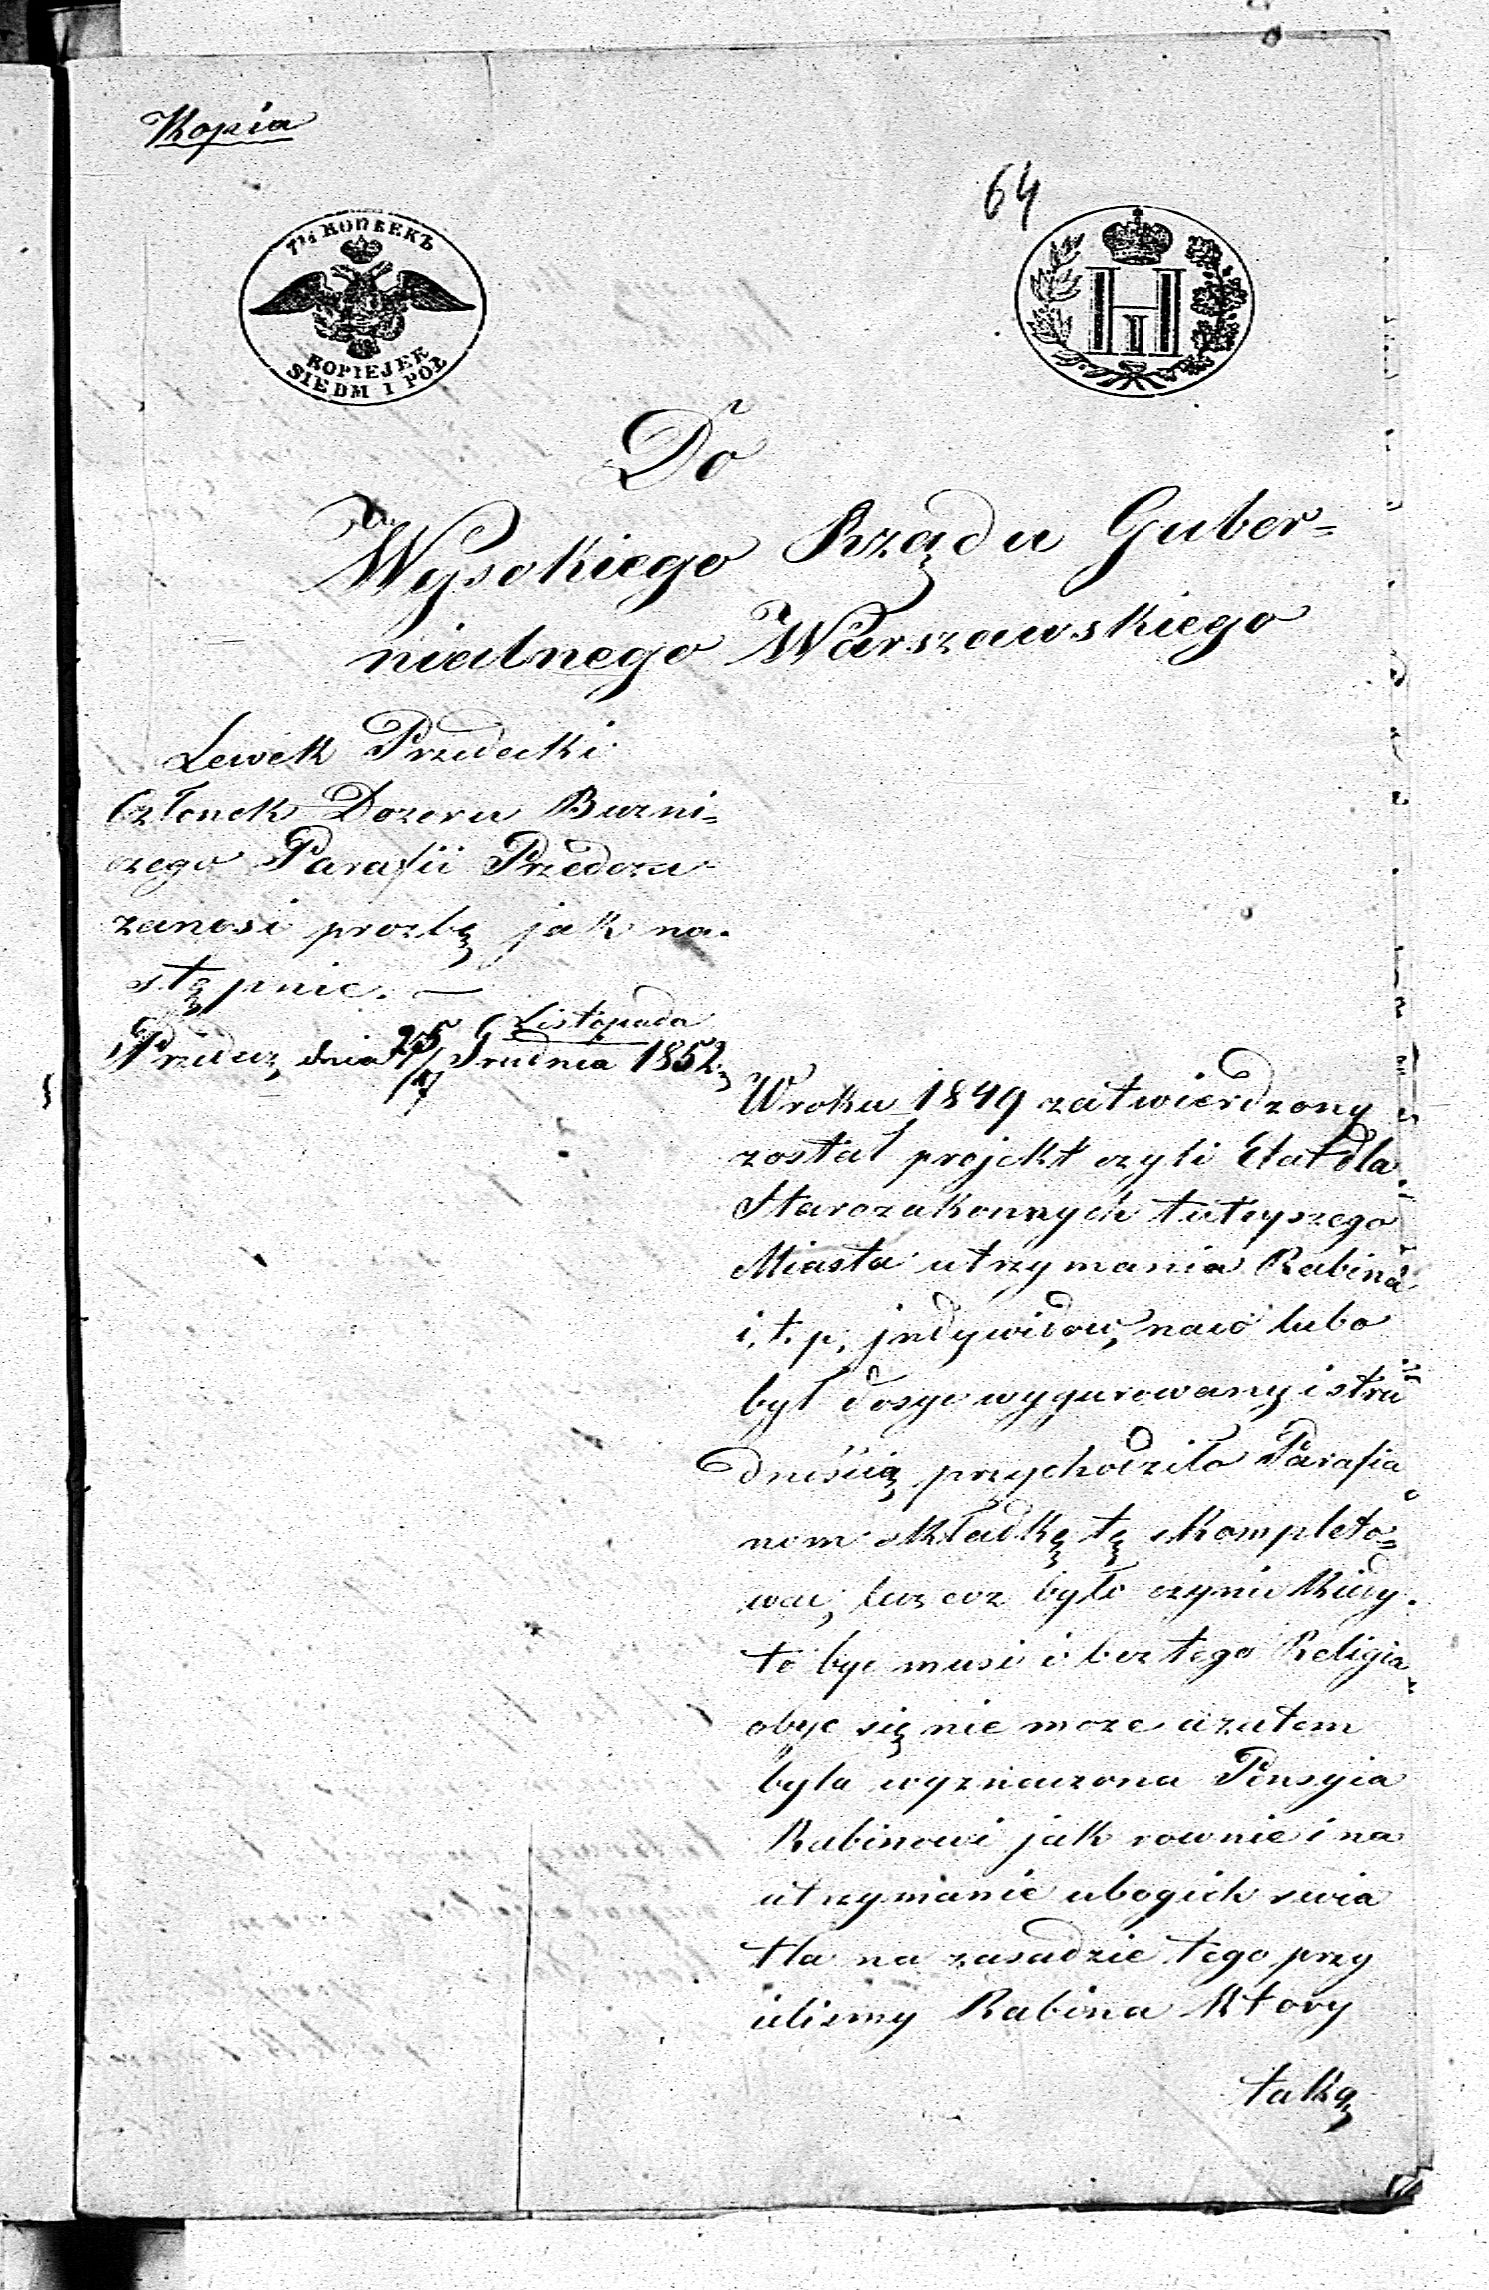 Kopia
64
7½ КОПѢЕКЪ
KOPIEJEK
SIEDM I PÓŁ
H I
Do
Wysokiego Rządu Guber=
nialnego Warszawskiego
Lewek Przedecki
Członek Dozoru Buzni=
czego Parafii Przedcza
zanosi prozbę jak na=
stępnie. —
Przedcz, dnia 25/7 Listopada/Grudnia 1852.
W roku 1849 zatwierdzony
został projekt czyli Etat dla
Starozakonnych tutejszego
Miasta utrzymania Rabina
i. t. p. jndywidow, lubo
był dosyc wygurowany i stru
dnością przychodziło Parafia
nom składkę tę skompleto=
wac, lecz coz było czynic kiedy
to byc musi i bez tego Religia
obyc się nie moze azatem
była wyznaczona Pensyia
Rabinowi jak rownie i na
utrzymanie ubogich swia
tła na zasadzie tego przy
ielismy Rabina ktory
taką